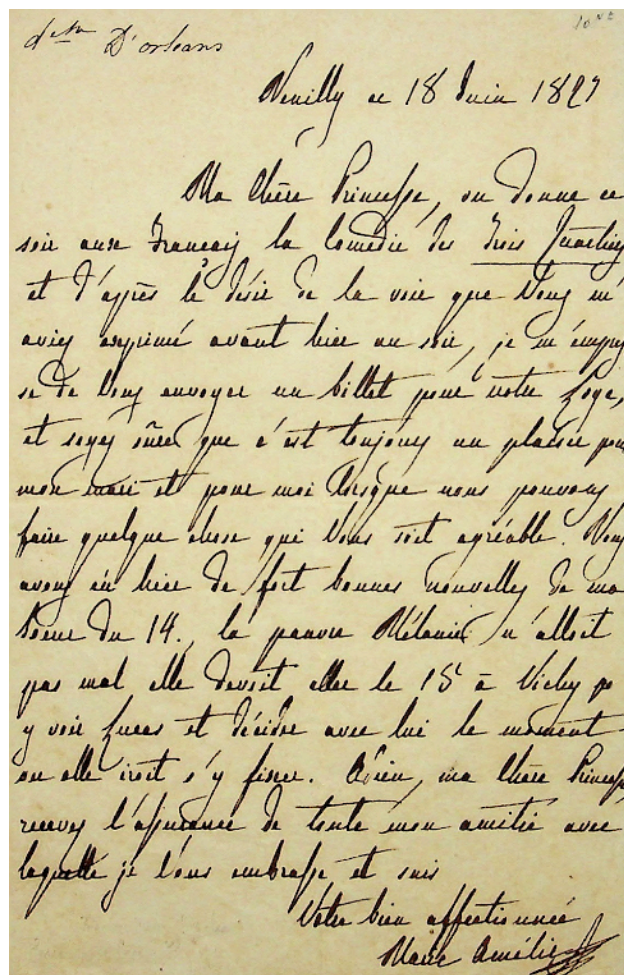 d'Orléans
10
Neuilly ce 18 Juin 1827
Ma Chère Princesse, on donne ce
soir aux Français la Comédie des Trois Quartiers
et d'après le désir de la voir que Vous m'
aviez exprimé avant hier au soir, je m'empres
se de Vous envoyer un billet pour notre Loge,
et soyez sûre que c'est toujours un plaisir pour
mon mari et pour moi lorsque nous pouvons
faire quelque chose qui Vous soit agréable. Nous
avons eu hier de fort bonnes nouvelles de ma
Soeur du 14, la pauvre Mélanie n'alloit
pas mal elle devoit aller le 15 à Vichy pr
y voir Lucas et décider avec lui le moment
ou elle iroit s'y fixer. Adieu, ma Chère Princesse
recevez l'assurance de toute mon amitié avec
laquelle je Vous embrasse et suis
Votre bien affectionnée
Marie Amélie